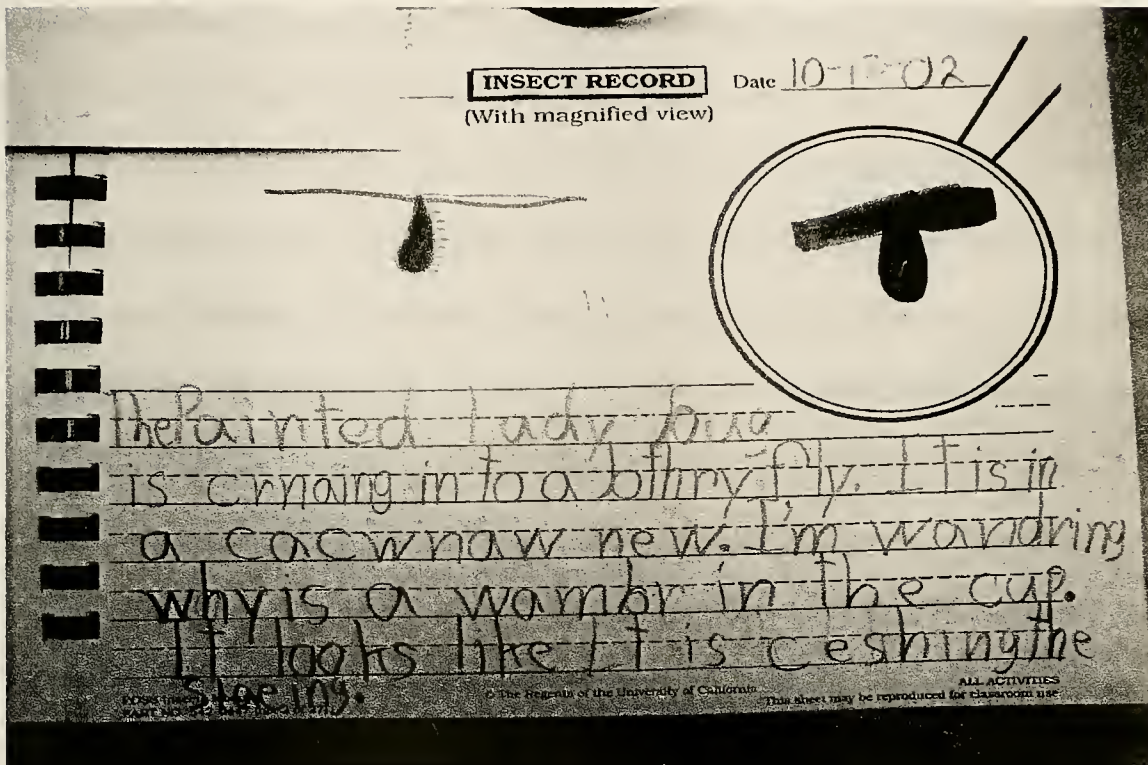 INSECT RECORD
Date 10-1 -02
(With magnified view)
the Painted Lady bug
is crnaing in to a bthry fly. It is in
a cacwnaw new. I'm wandring
why is a wambr in the cup.
It looks like It is ceshing the
© The Regents of the University of California
ALL ACTIVITIES
This sheet may be reproduced for classroom use